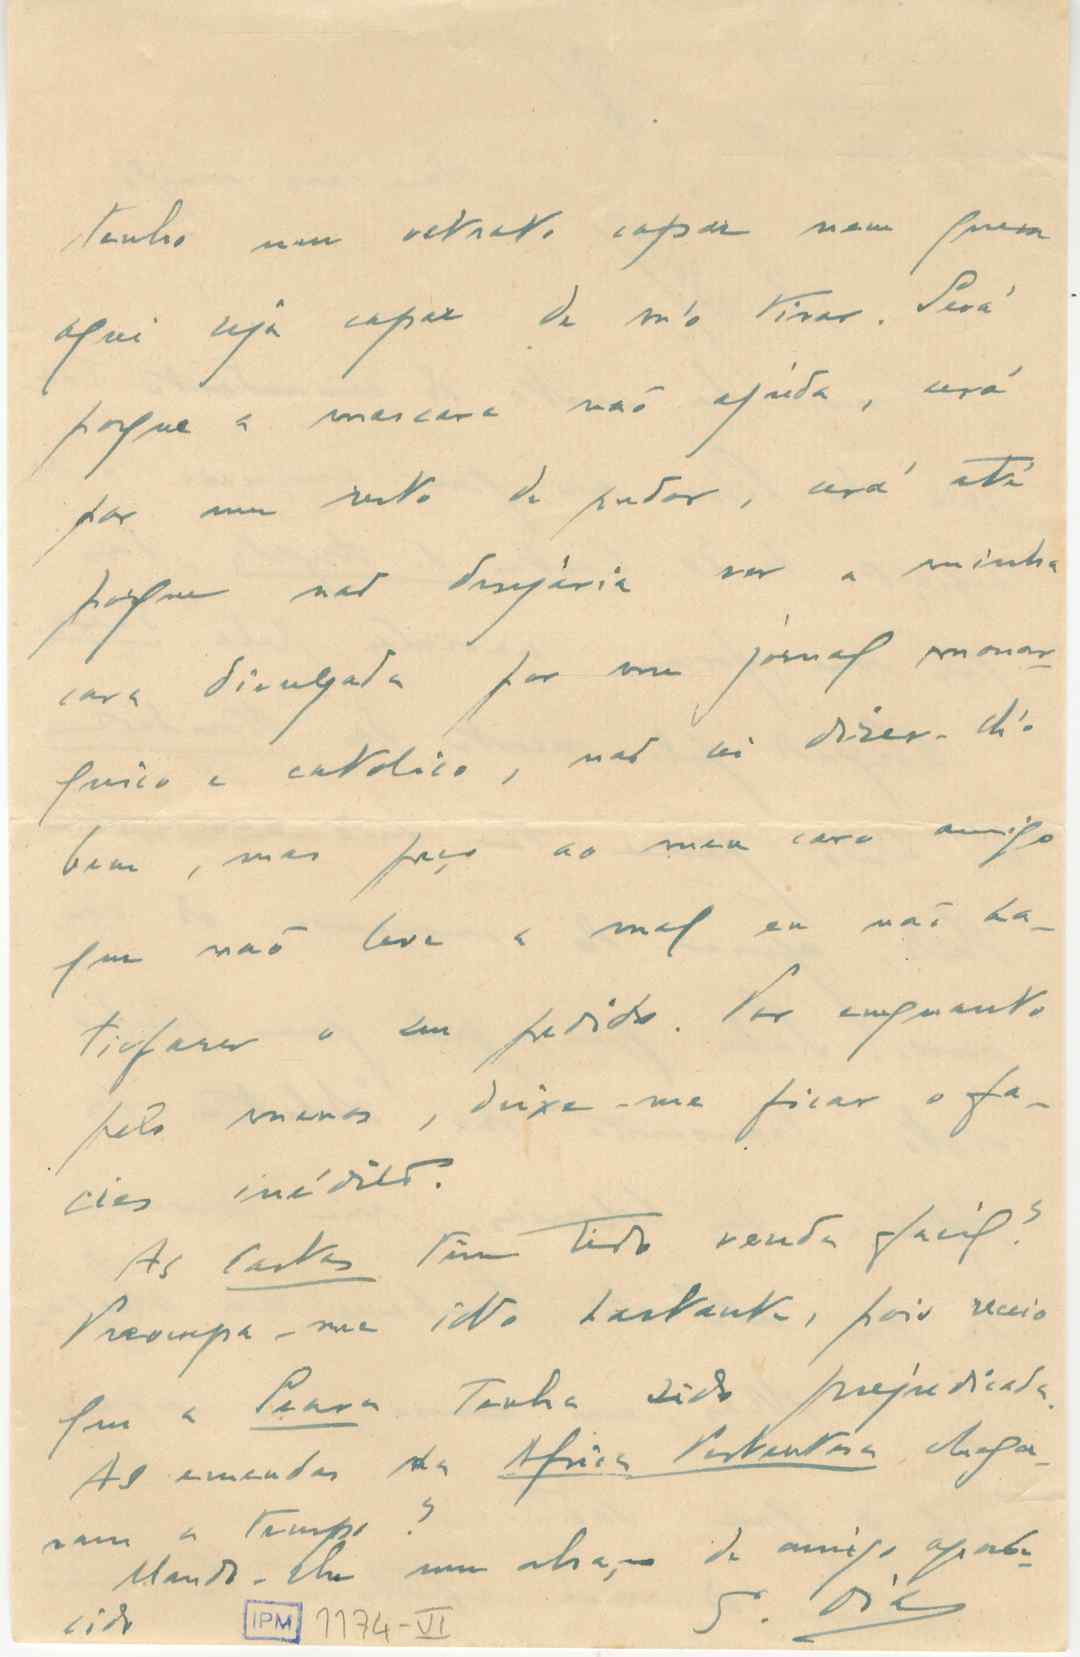 tenho um retrato capaz nem quem
aqui seja capaz de m'o tirar. Será
porque a mascara não ajuda, será
por um resto de pudor, será até
porque não desejaria ver a minha
cara divulgada por um jornal monar-
quico e catolico, não sei dizer-lh'o
bem, mas peço ao meu caro amigo
que não leve a mal eu não sa-
tisfazer o seu pedido. Por emquanto
pelo menos, deixe-me ficar o fa-
cies inédito.
As Cartas têm tido venda facil?
Preocupa-me isto bastante, pois receio
que a Seara tenha sido prejudicada.
As emendas da Africa Portentosa chega-
ram a tempo?
Mando-lhe um abraço de amigo agrade-
cido
G. Dias
IPM 1174-VI